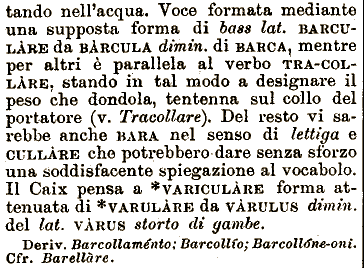 tando nell'acqua. Voce formata mediante
una supposta forma di bass lat. BARCU-
LÀRE da BÀRCULA dimin. di BARCA, mentre
per altri è parallela al verbo TRA-COL-
LÀRE, stando in tal modo a designare il
peso che dondola, tentenna sul collo del
portatore (v. Tracollare). Del resto vi sa-
rebbe anche BARA nel senso di lettiga e
CULLÀRE che potrebbero dare senza sforzo
una soddisfacente spiegazione al vocabolo.
Il Caix pensa a *VARICULÀRE forma at-
tenuata di *VARULÀRE da VÀRULUS dimin.
del lat. VÀRUS storto di gambe.
Deriv. Barcollaménto; Barcollío; Barcollóne-oni.
Cfr. Barellàre.